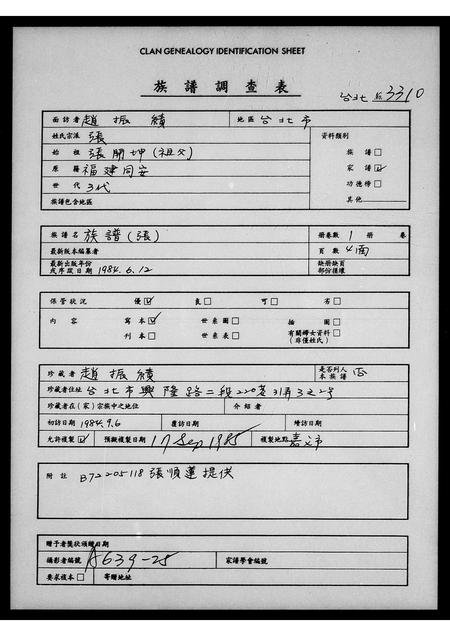 CLAN GENEALOGY IDENTIFICATION SHEET
族譜調查表
台北 № 3310
面訪者 趙振績 地區 台北市
姓氏宗派 張 資料類別
始祖 張開坤(祖父) 族譜□
原籍 福建同安 家譜☑
世代 3代 功德榜□
族譜包含地區 其他
族譜名 族譜(張) 冊卷數 1 冊 卷
最新版本編纂者 頁數 4面
最新出版年份 缺冊缺頁
或序跋日期 1984.6.12 部份損壞
保管狀況 優☑ 良□ 可□ 劣□
內容 寫本☑ 世系圖□ 插圖□ 有關婦女資料□
刊本□ 世系表□ (非僅姓氏)
珍藏者 趙振績 是否列入本族譜 否
珍藏者住址 台北市興隆路二段220巷31弄3之2号
珍藏者在(家)宗族中之地位 介紹者
初訪日期 1984.9.6 覆訪日期 續訪日期
允許複製☑ 預擬複製日期 17 Sep 1985 複製地點 嘉市
附註 B722205118 張順蓮提供
贈予者獎狀頒贈日期
攝影者編號 A639-25 家譜學會編號
要求複本□ 寄贈地址